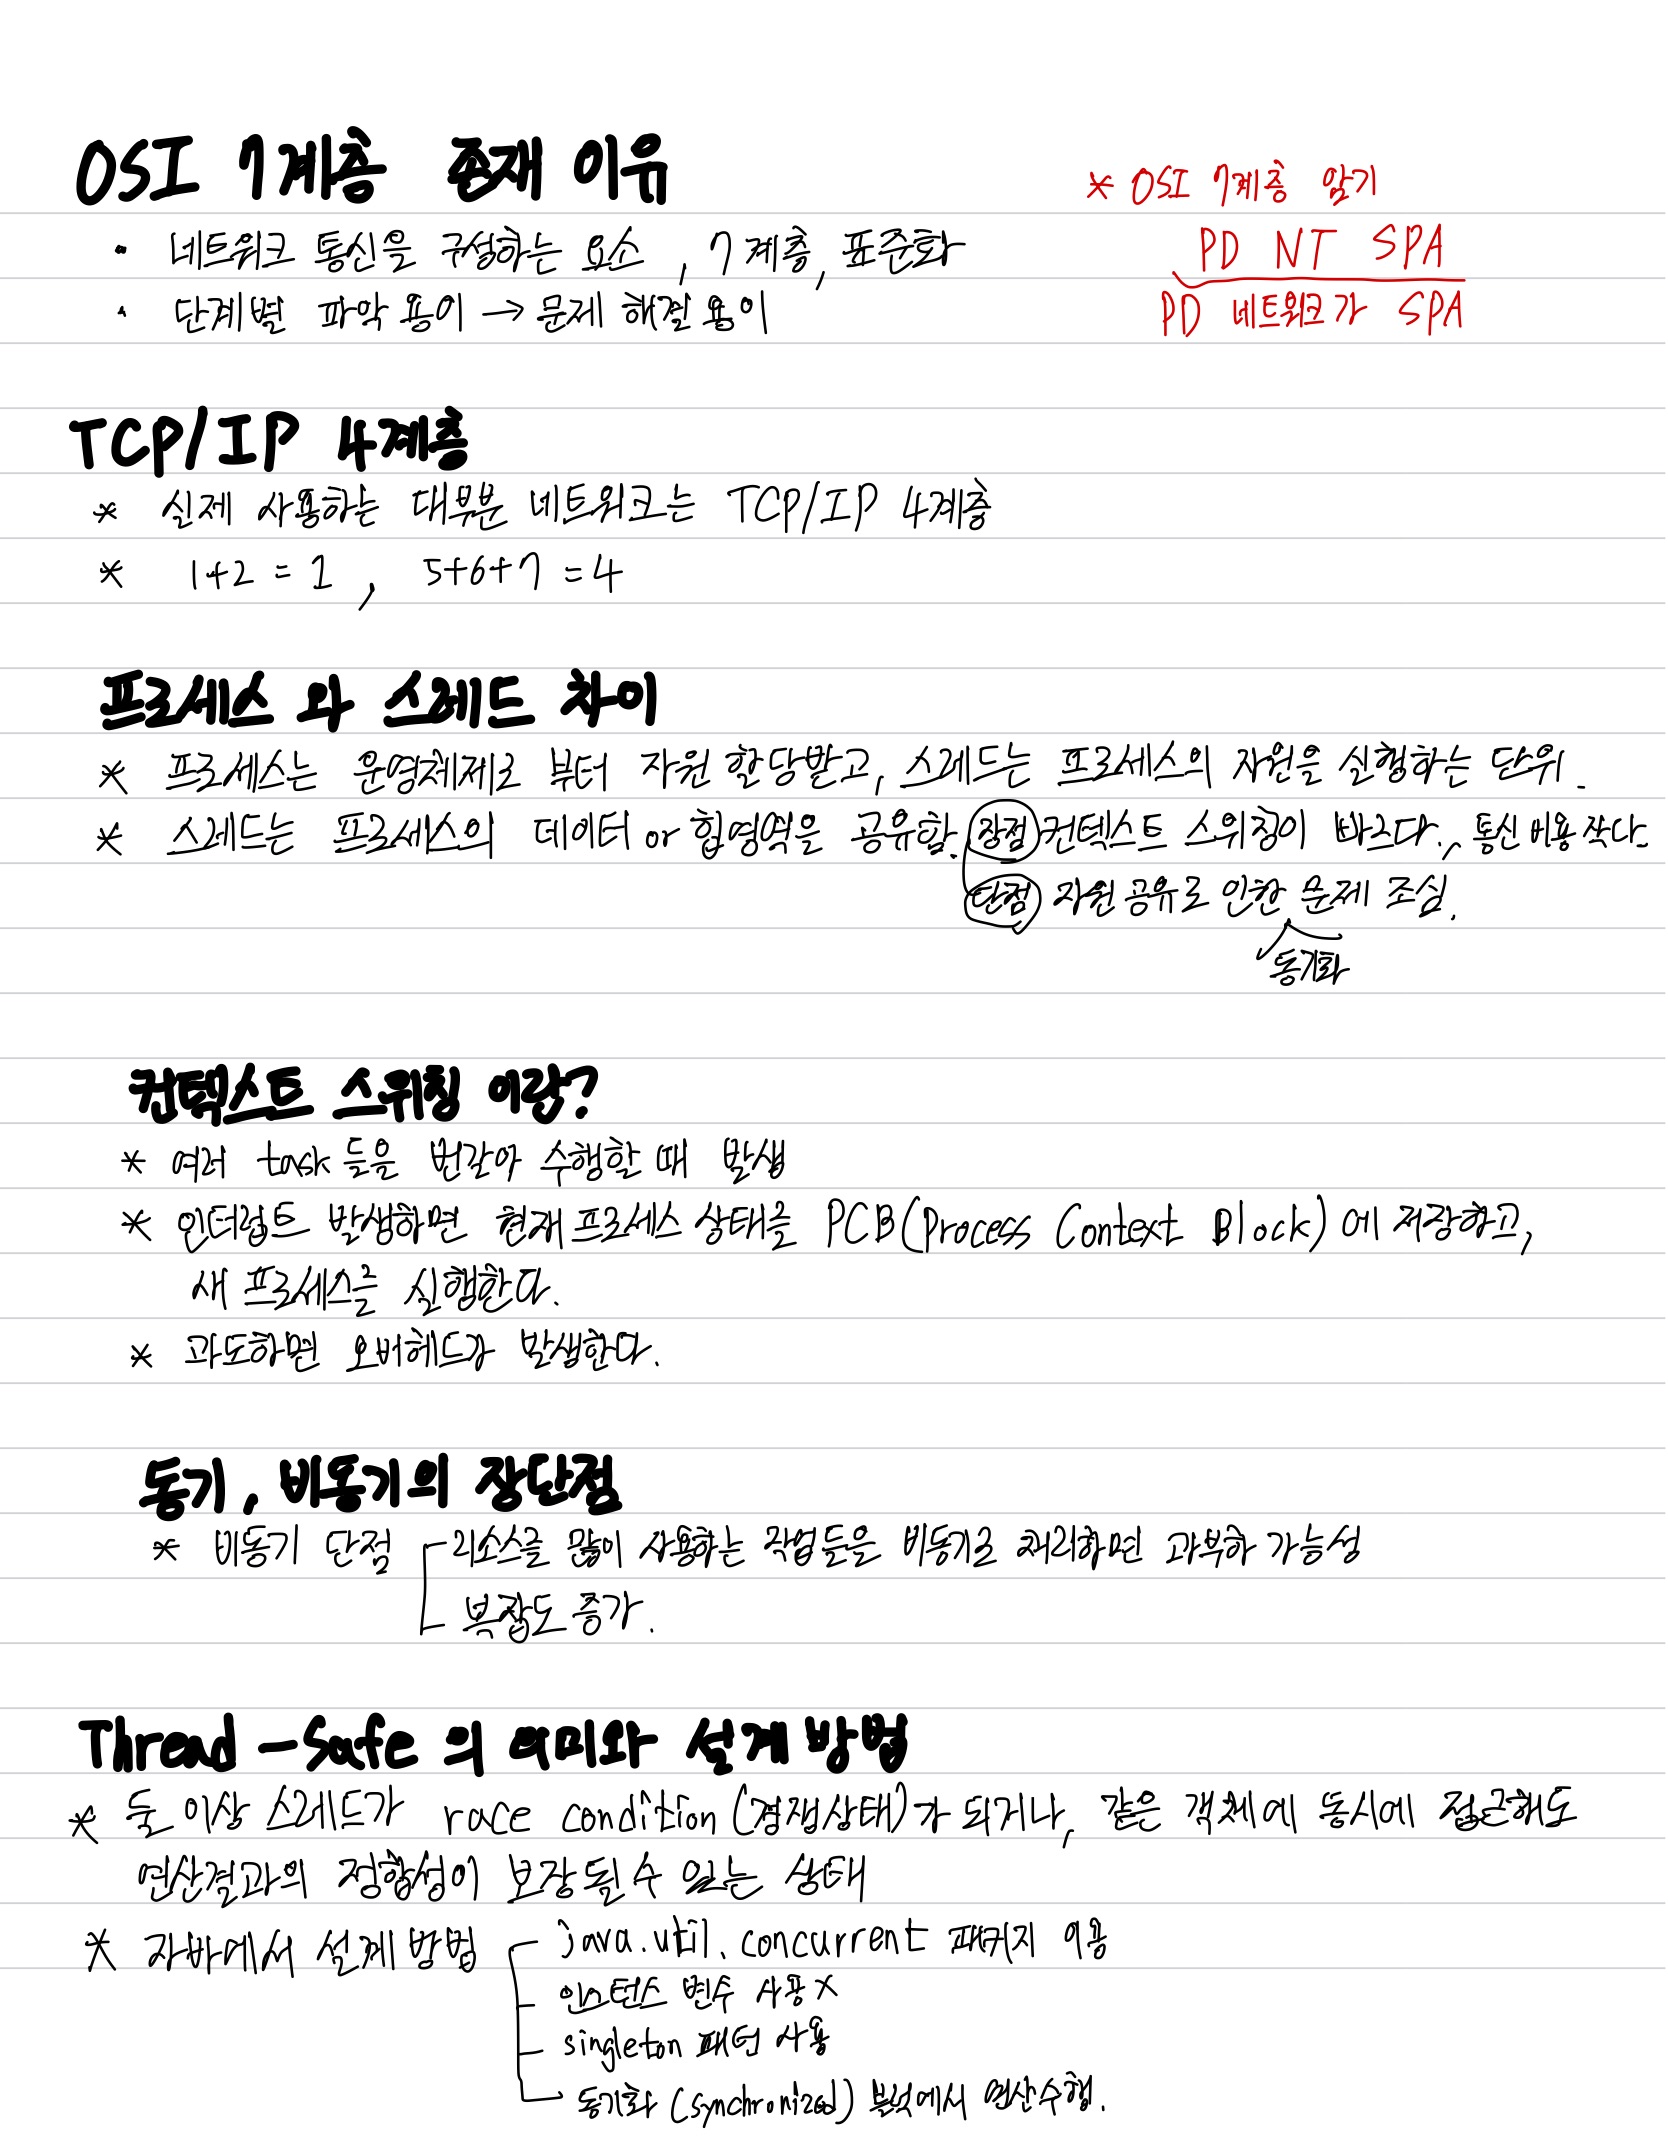 OSI 7계층 존재 이유
* OSI 7계층 암기
• 네트워크 통신을 구성하는 요소, 7계층, 표준화
PD NT SPA
• 단계별 파악 용이 → 문제 해결 용이
PD 네트워크가 SPA
TCP/IP 4계층
* 실제 사용하는 대부분 네트워크는 TCP/IP 4계층
* 1+2 = 1 , 5+6+7 = 4
프로세스 와 스레드 차이
* 프로세스는 운영체제로 부터 자원 할당받고, 스레드는 프로세스의 자원을 실행하는 단위.
* 스레드는 프로세스의 데이터 or 힙영역을 공유함. 장점 컨텍스트 스위칭이 빠르다., 통신 비용 작다.
단점 자원 공유로 인한 문제 조심.
동기화
컨텍스트 스위칭 이란?
* 여러 task 들을 번갈아 수행할 때 발생
* 인터럽트 발생하면 현재 프로세스 상태를 PCB(Process Context Block)에 저장하고,
새 프로세스를 실행한다.
* 과도하면 오버헤드가 발생한다.
동기, 비동기의 장단점
* 비동기 단점 리소스를 많이 사용하는 작업들을 비동기로 처리하면 과부하 가능성
복잡도 증가.
Thread-Safe 의 의미와 설계 방법
* 둘 이상 스레드가 race condition(경쟁상태)가 되거나, 같은 객체에 동시에 접근해도
연산결과의 정합성이 보장될 수 있는 상태
* 자바에서 설계 방법 java.util.concurrent 패키지 이용
인스턴스 변수 사용 X
singleton 패턴 사용
동기화 (synchronized) 블럭에서 연산수행.